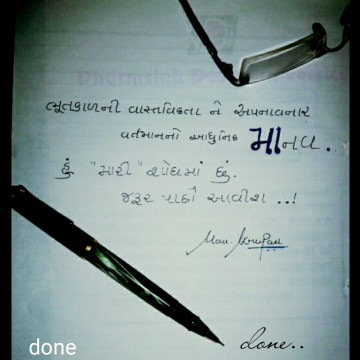 ભૂતકાળની વાસ્તવિકતા ને અપનાવનાર
વર્તમાનનો આધુનિક માનવ.
હું "મારી" શોધમાં છું.
જરૂર પાછો આવીશ ..!
done
done..